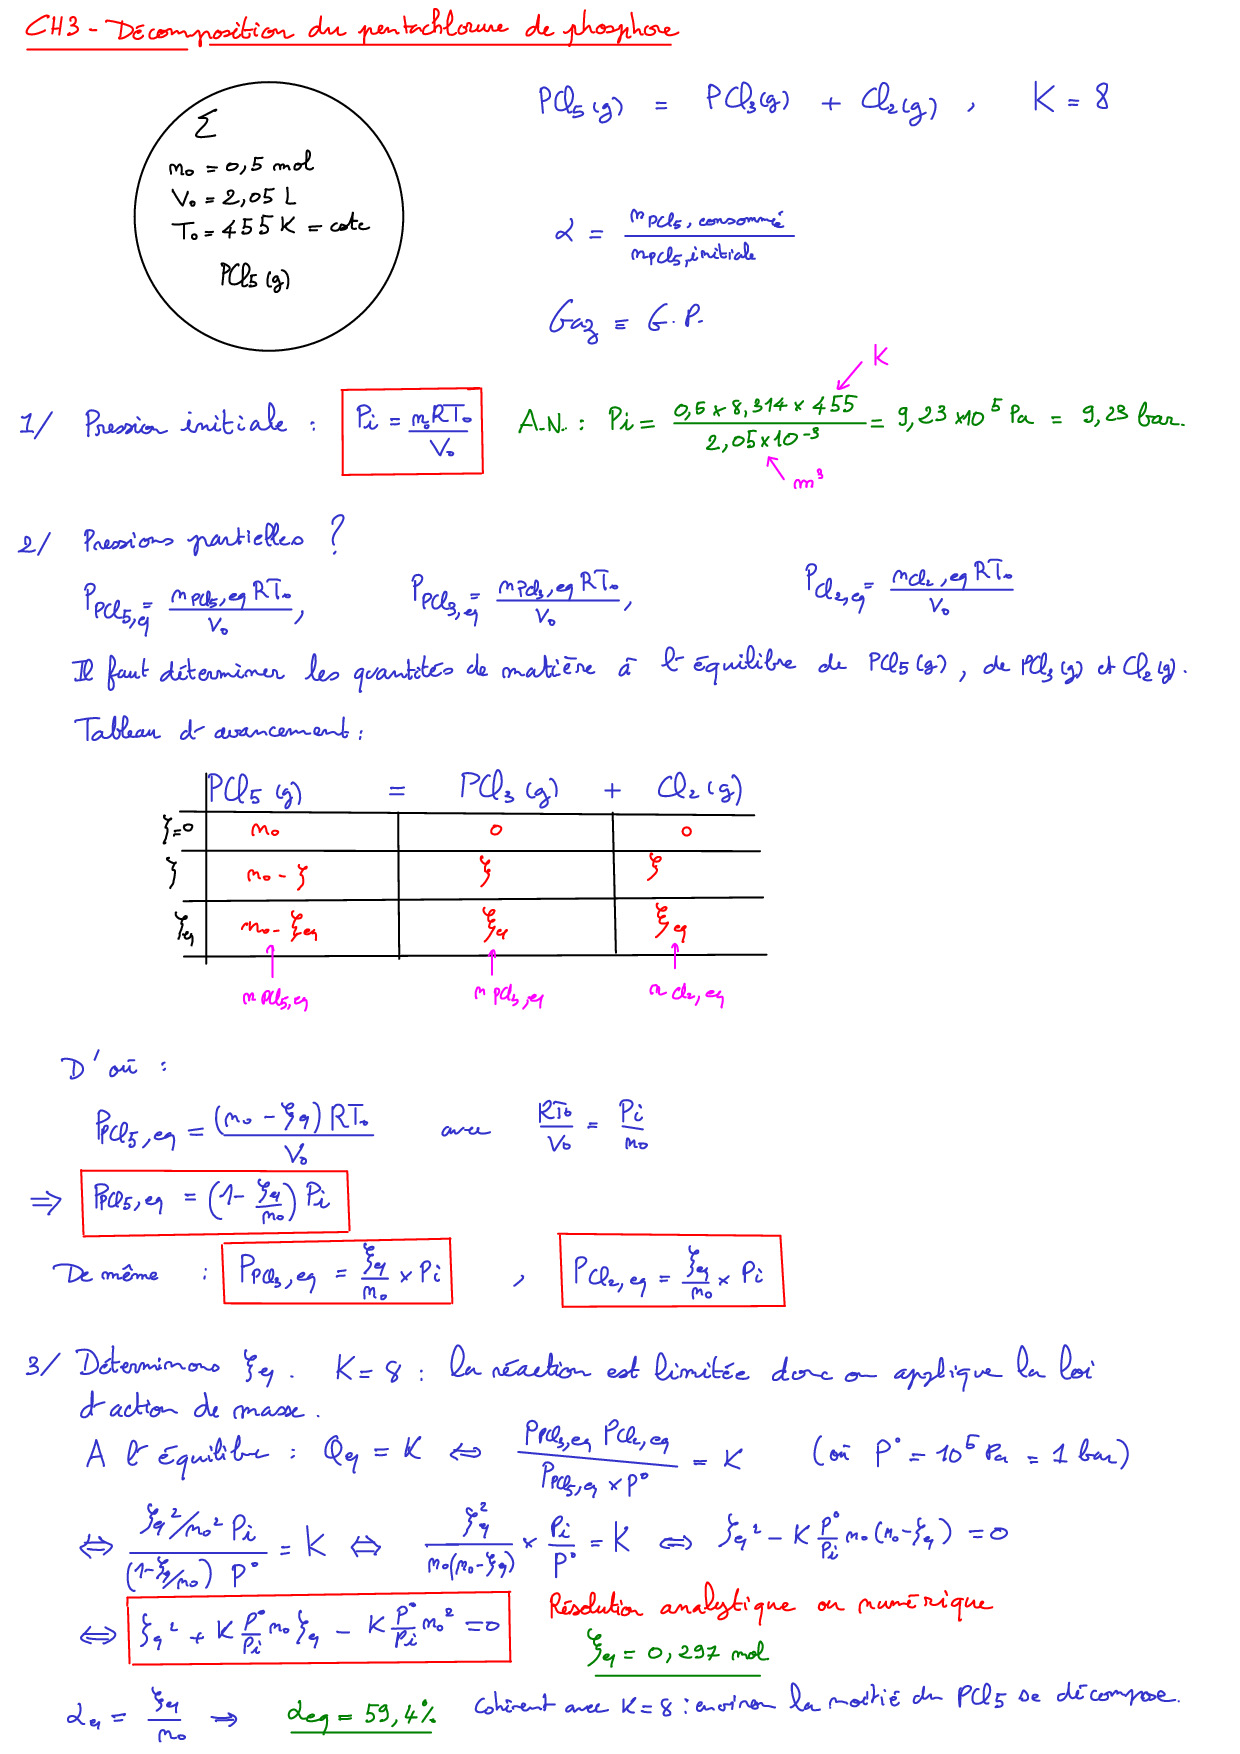 CH3 - Décomposition du pentachlorure de phosphore
Σ
n₀ = 0,5 mol
V₀ = 2,05 L
T₀ = 455 K = cste
PCl₅ (g)
PCl₅ (g) = PCl₃ (g) + Cl₂ (g) , K = 8
α = n PCl₅, consommé / n PCl₅, initiale
Gaz ≡ G.P.
1/ Pression initiale : Pi = n₀RT₀ / V₀ A.N. : Pi = 0,5 × 8,314 × 455 / 2,05 × 10⁻³ = 9,23 × 10⁵ Pa = 9,23 bar.
K
m³
2/ Pressions partielles ?
P PCl₅, eq = n PCl₅, eq RT₀ / V₀ , P PCl₃, eq = n PCl₃, eq RT₀ / V₀ , P Cl₂, eq = n Cl₂, eq RT₀ / V₀
Il faut déterminer les quantités de matière à l'équilibre de PCl₅ (g), de PCl₃ (g) et Cl₂ (g).
Tableau d'avancement :
PCl₅ (g) = PCl₃ (g) + Cl₂ (g)
ξ=0 n₀ 0 0
ξ n₀ - ξ ξ ξ
ξeq n₀ - ξeq ξeq ξeq
n PCl₅, eq n PCl₃, eq n Cl₂, eq
D'où :
P PCl₅, eq = (n₀ - ξeq) RT₀ / V₀ avec RT₀ / V₀ = Pi / n₀
⇒ P PCl₅, eq = (1 - ξeq / n₀) Pi
De même : P PCl₃, eq = ξeq / n₀ × Pi , P Cl₂, eq = ξeq / n₀ × Pi
3/ Déterminons ξeq. K = 8 : la réaction est limitée donc on applique la loi
d'action de masse.
A l'équilibre : Qeq = K ⇔ P PCl₃, eq P Cl₂, eq / P PCl₅, eq × P° = K (où P° = 10⁵ Pa = 1 bar)
⇔ ξeq²/n₀² Pi / (1-ξeq/n₀) P° = K ⇔ ξeq² / n₀(n₀-ξeq) × Pi / P° = K ⇔ ξeq² - K P°/Pi n₀ (n₀-ξeq) = 0
⇔ ξeq² + K P°/Pi n₀ ξeq - K P°/Pi n₀² = 0 Résolution analytique ou numérique
ξeq = 0,297 mol
αeq = ξeq / n₀ ⇒ αeq = 59,4% Cohérent avec K = 8 : environ la moitié du PCl₅ se décompose.